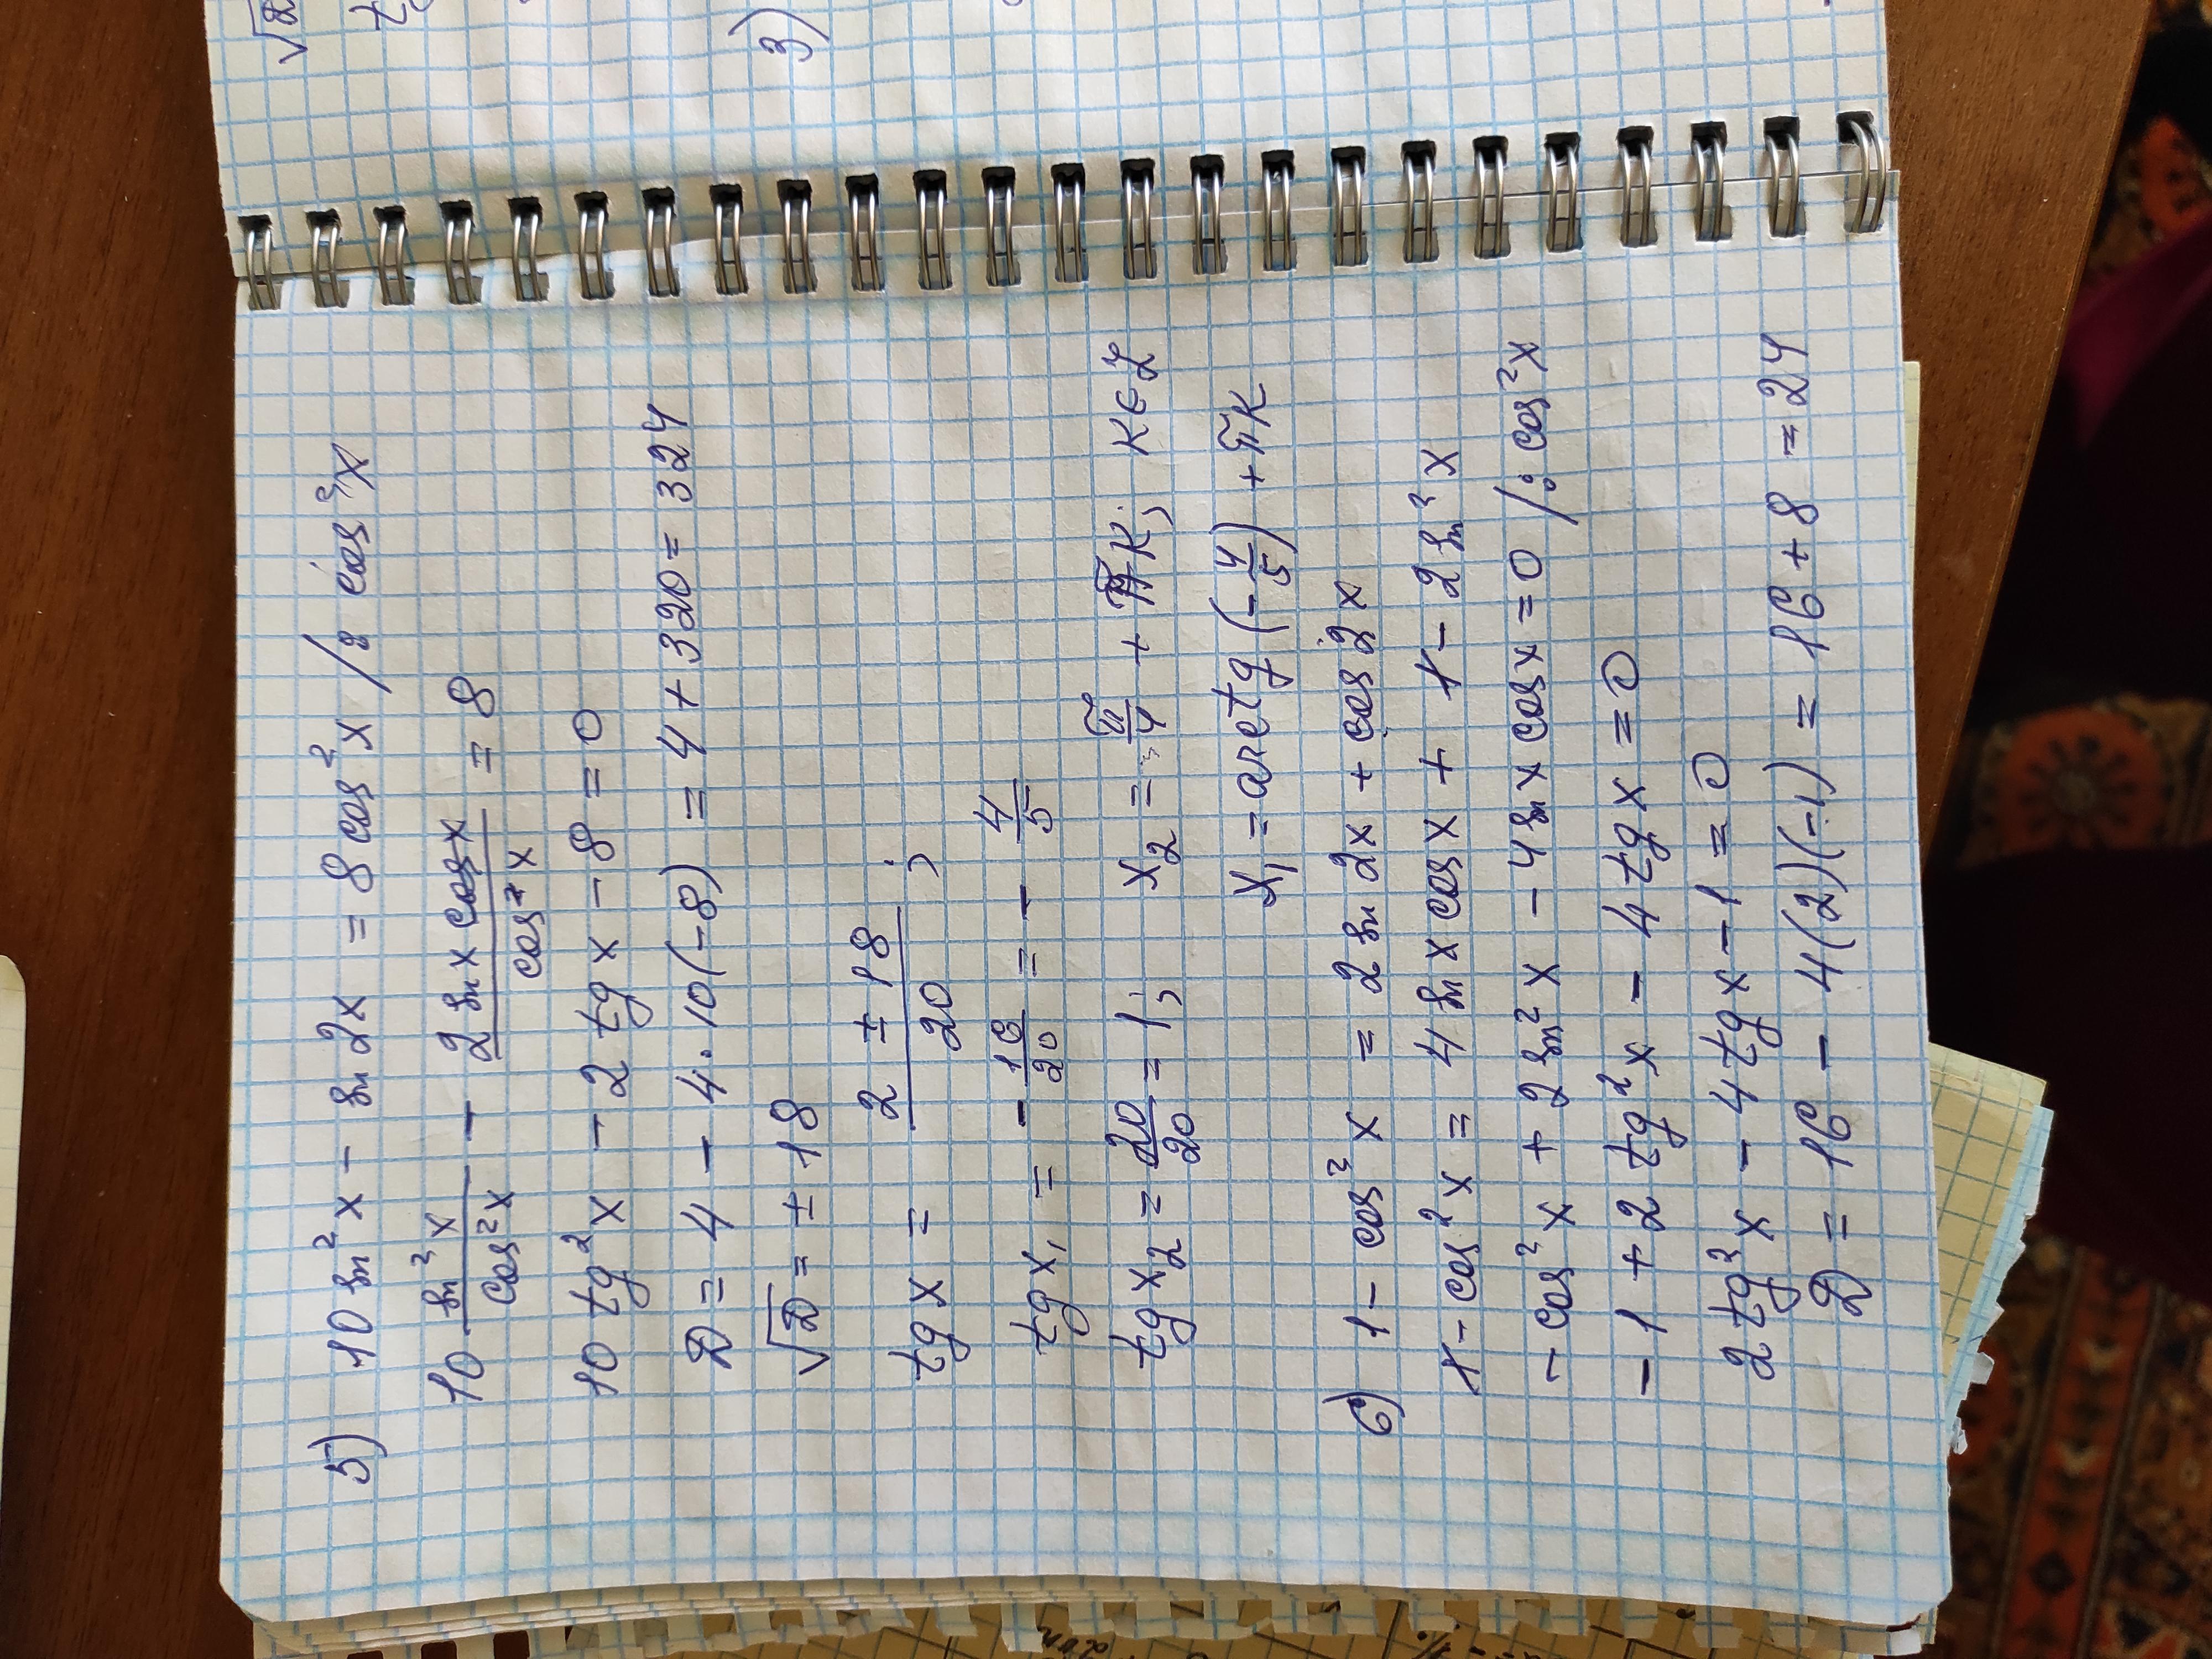 √2
tg
3)
5) 10 sin²x - sin 2x = 8cos²x /: cos²x
10 sin²x/cos²x - 2 sin x cos x/cos²x = 8
10 tg²x - 2 tg x - 8 = 0
D = 4 - 4·10(-8) = 4 + 320 = 324
√D = ± 18
tg x = 2 ± 18/20 ;
tg x₁ = - 16/20 = - 4/5
tg x₂ = 20/20 = 1; x₂ = π/4 + πK; K∈Z
x₁ = arctg (-4/5) + πK
6) 1 - cos²x = 2 sin 2x + cos 2x
1 - cos²x = 4 sin x cos x + 1 - 2 sin²x
- cos²x + 2 sin²x - 4 sin x cos x = 0 /: cos²x
- 1 + 2 tg²x - 4 tg x = 0
2 tg²x - 4 tg x - 1 = 0
D = 16 - 4(2)(-1) = 16 + 8 = 24